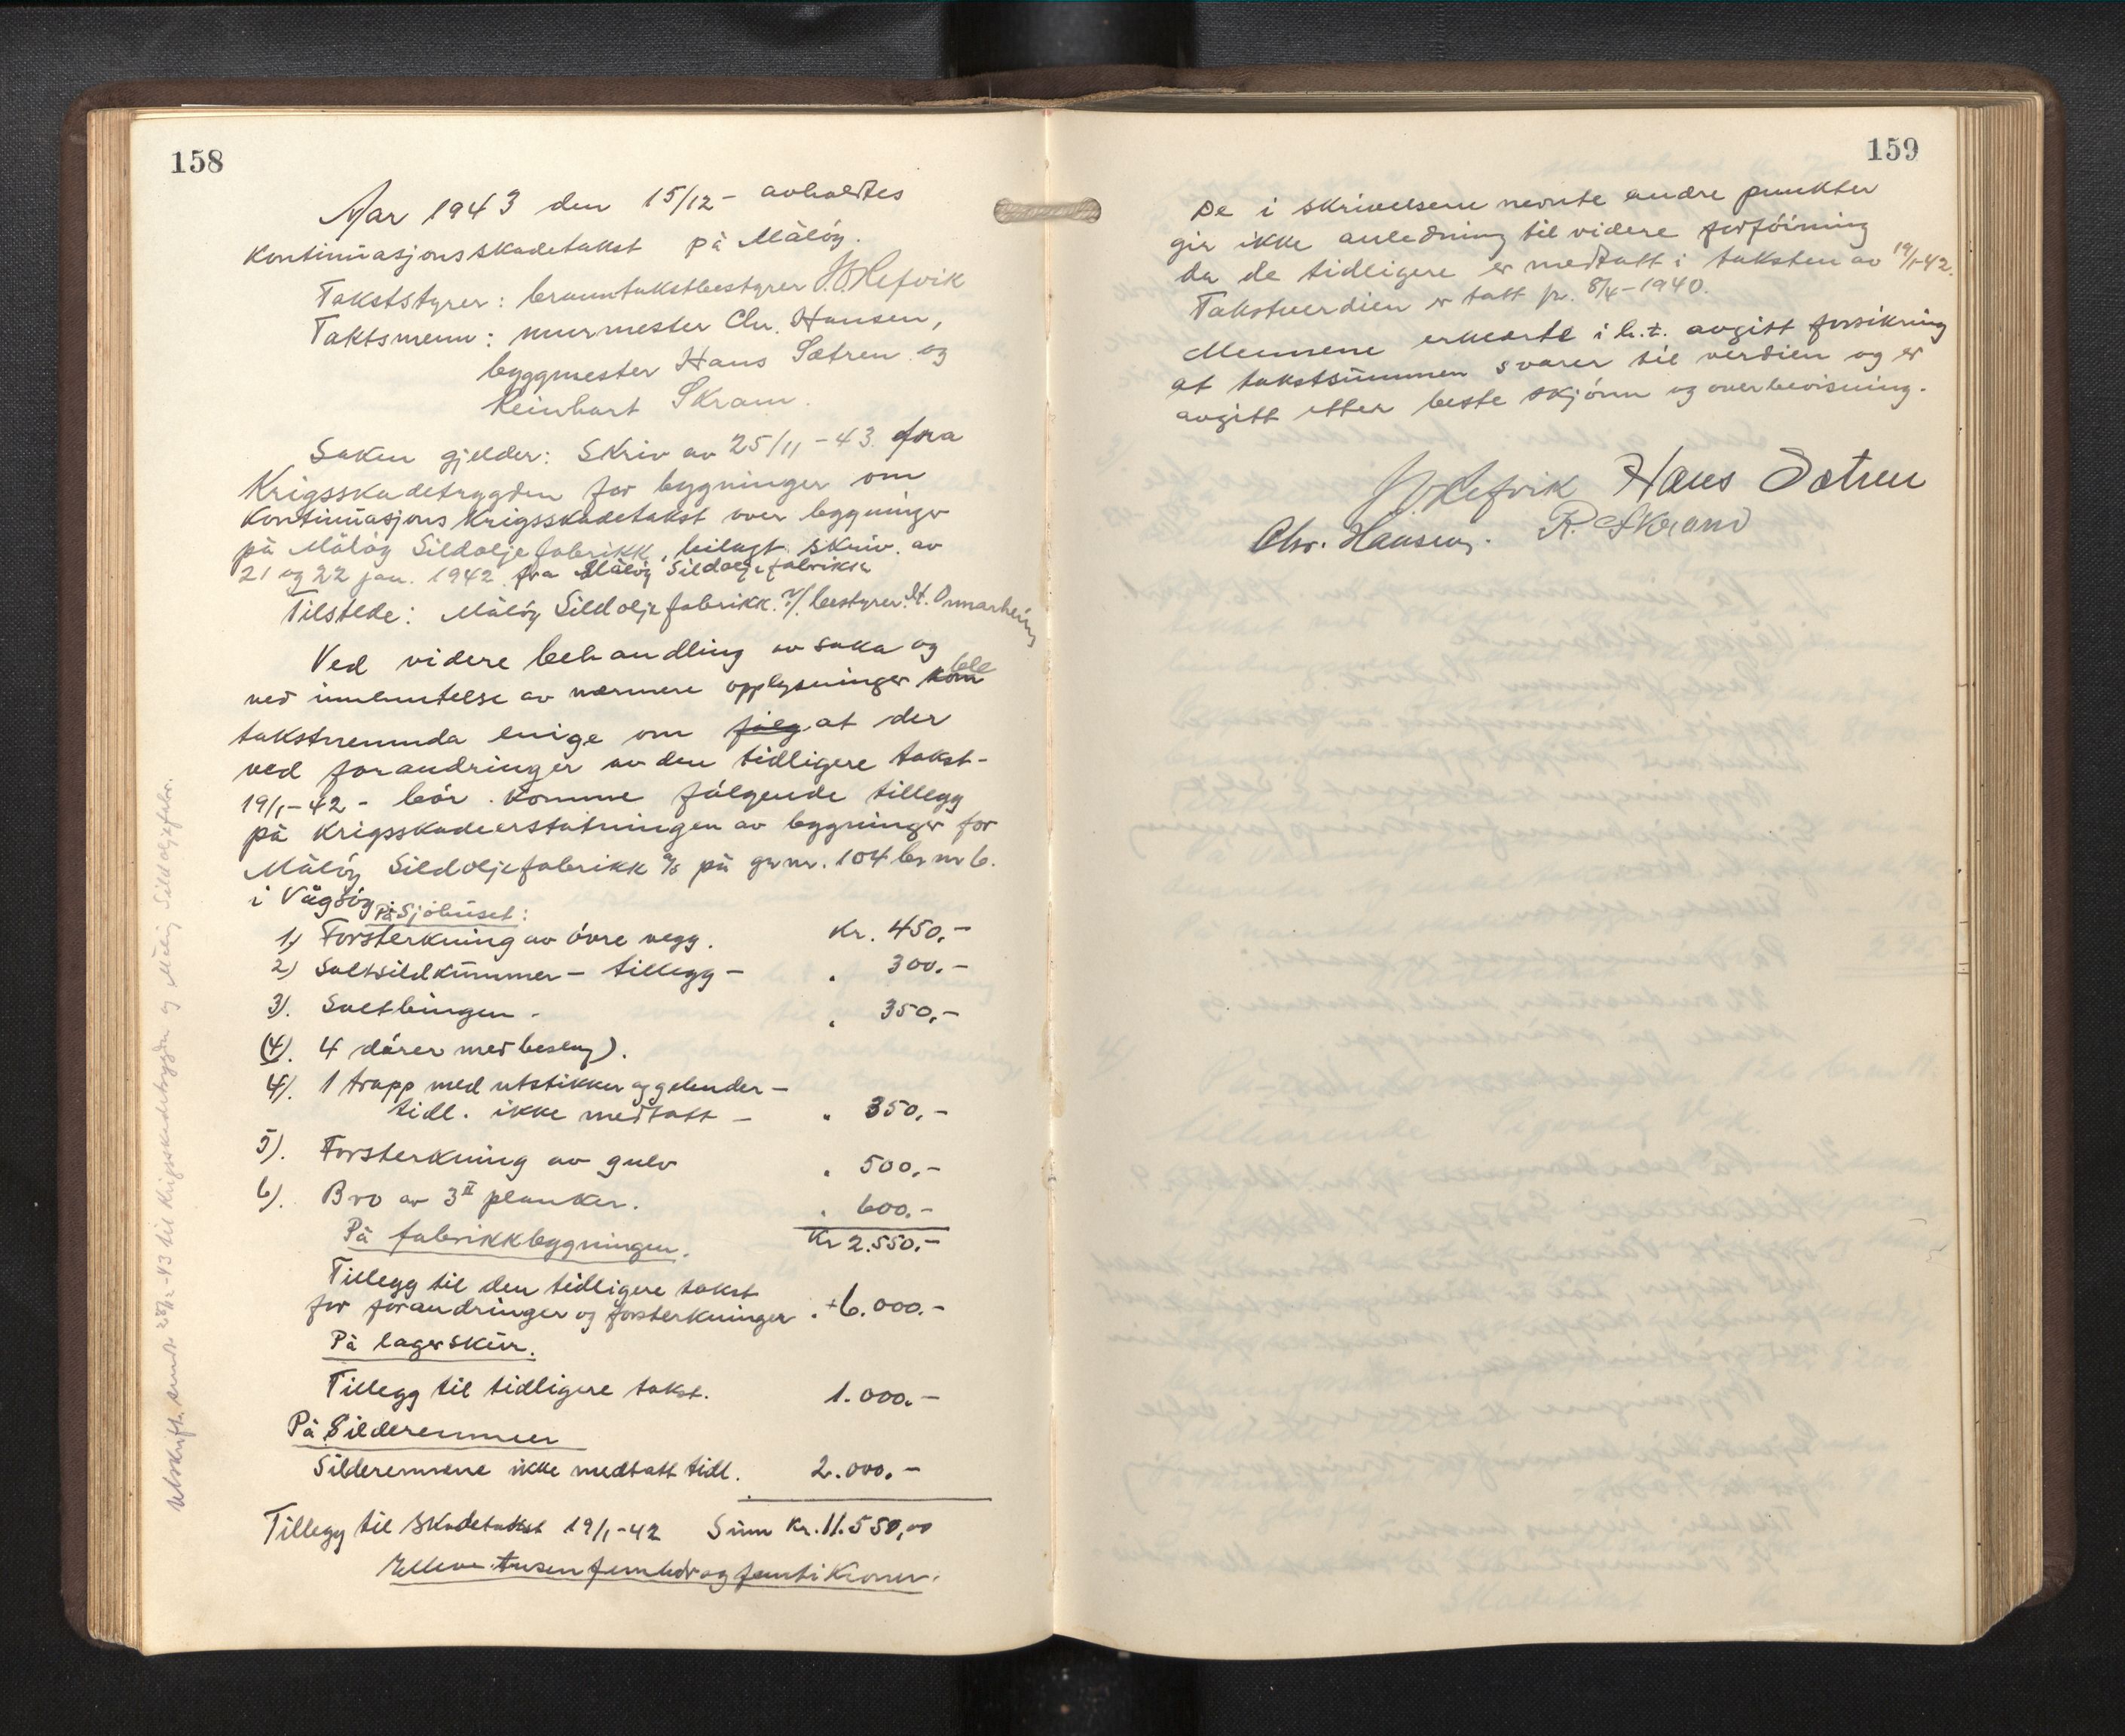 158
Aar 1943 den 15/12 - avholdtes
kontinuasjonsskadetakst på Måløy.
Takststyrer: branntakstbestyrer J. O. Refvik
Taktsmenn: murmester Chr. Hansen,
byggmester Hans Sætren og
Reinhart Skram.
Saken gjelder: Skriv av 25/11-43. fra
Krigsskadetrygden for bygninger om
kontinuasjons krigsskadetakst over bygninger
på Måløy Sildoljefabrikk, bilagt skriv. av
21 og 22 jan. 1942 fra Måløy Sildoljefabrikk
Tilstede: Måløy Sildoljefabrikk. v/ bestyrer
Ved videre behandling av saka og
ved innhentelse av nærmere opplysninger kom ble
takstnemnda enige om følg at der
ved forandringer av den tidligere takst-
19/1-42 - bør komme følgende tillegg
på krigsskadeerstatningen av bygninger for
Måløy Sildoljefabrikk a/s på gr.nr. 104 br nr 6.
i Vågsøy. På Sjøhuset:
1) Forsterkning av øvre vegg. Kr. 450,-
2) Saltsildkummer - tillegg - " 300.-
3). Saltbingen - " 350,-
(4). 4 dører med beslag).
4). 1 trapp med utstikker og gelender -
tidl. ikke medtatt - " 350,-
5). Forsterkning av gulv " 500,-
6). Bro av 3" planker. " 600.-
Kr 2.550.-
På fabrikkbygningen.
Tillegg til den tidligere takst
for forandringer og forsterkninger . + 6.000.-
På lagerskur.
Tillegg til tidligere takst. 1.000.-
På Silderennen
Silderennene ikke medtatt tidl. 2.000.-
Tillegg til Skadetakst 19/1-42 Sum Kr. 11.550,00
Elleve tusen femhdr og femti Kroner.
Utskrift sendt 28/12-43 til Krigsskadetrygden og Måløy Sildoljefabr.
159
De i skrivelsene nevnte andre punkter
gir ikke anledning til videre forføining
da de tidligere er medtatt i taksten av 19/1-42.
Takstverdien er tatt pr. 8/4-1940.
Mennene erklærte i h.t. avgitt forsikring
at takstsummen svarer til verdien og er
avgitt etter beste skjønn og overbevisning.
J. O. Refvik Hans Sætren
Chr. Hansen. R. Skram